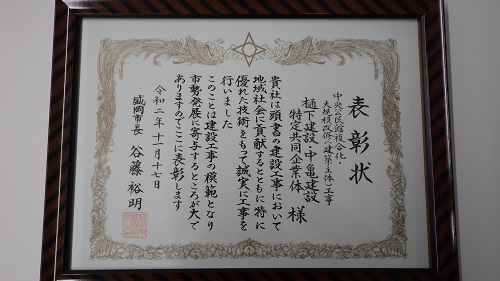 表彰状
中央公民館複合化・
大規模改修(建築主体)工事
樋下建設・中亀建設
特定共同企業体 様
貴社は頭書の建設工事において
地域社会に貢献するとともに特に
優れた技術をもって誠実に工事を
行いました
このことは建設工事の模範となり
市勢発展に寄与するところが大で
ありますのでここに表彰します
令和二年十一月十七日
盛岡市長 谷藤裕明